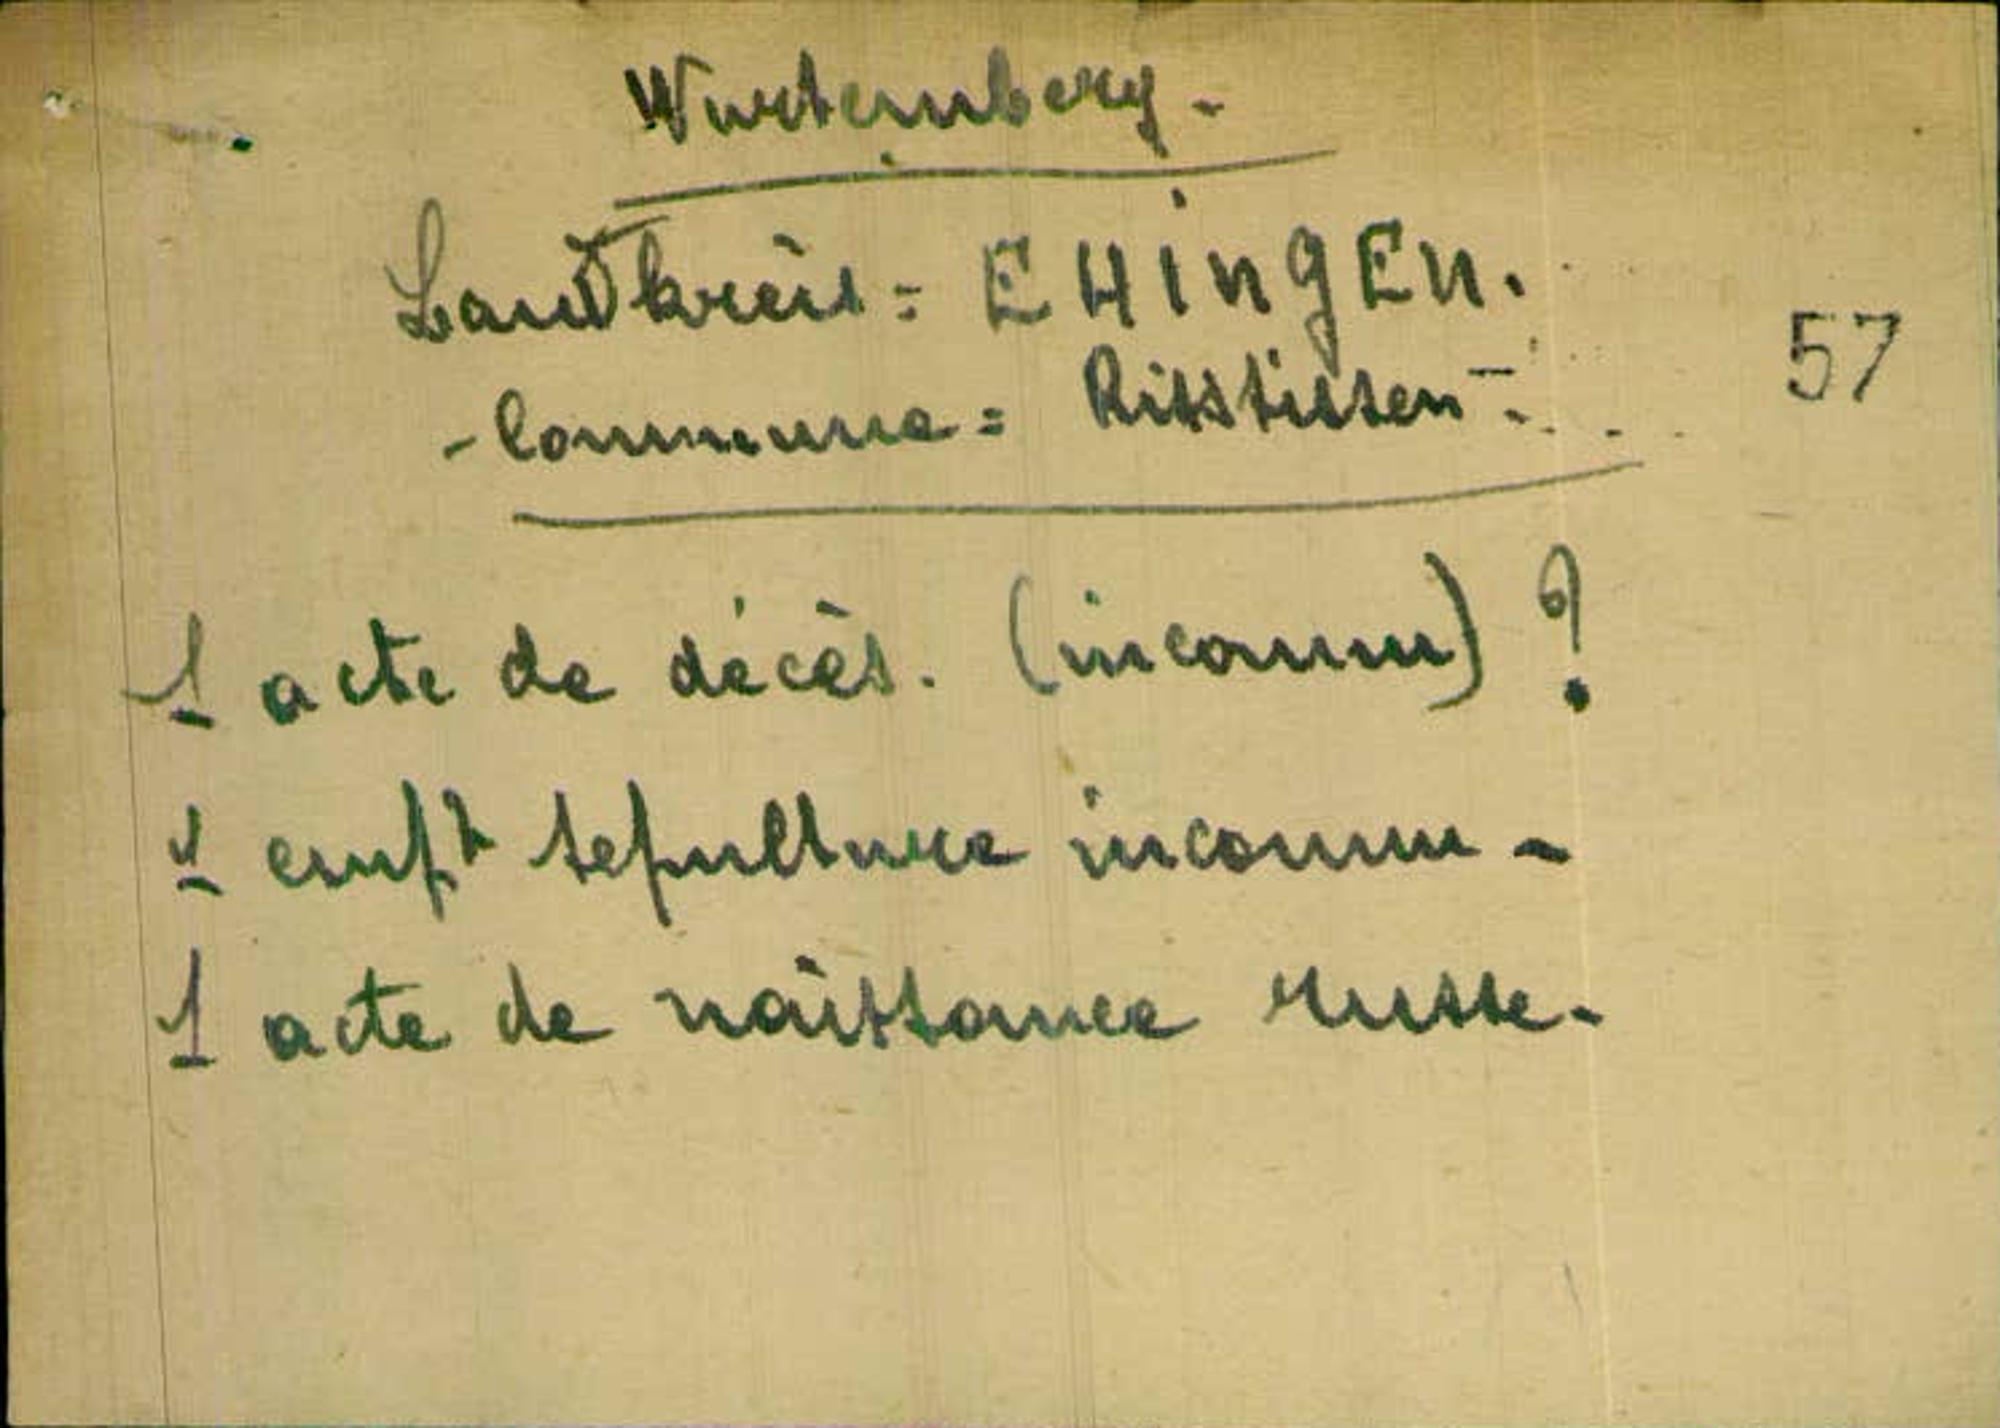 Wurtemberg -
Landkreis = EHINGEN.
- Commune = Risstissen -
57
1 acte de décès. (inconnu) ?
1 empt sepulture inconnu -
1 acte de naissance russe.